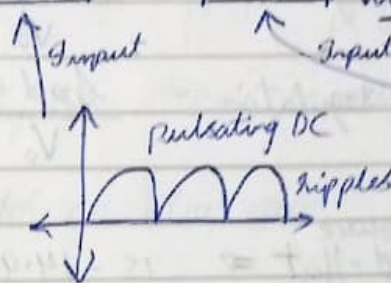 Input
Input
pulsating DC
ripples